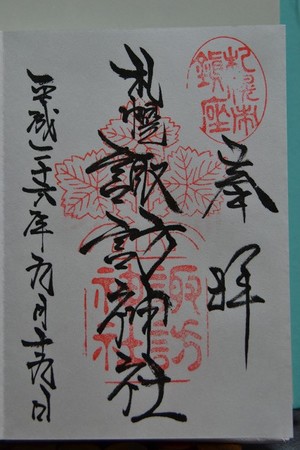 札幌市鎮座
奉拝
札幌諏訪神社
諏訪神社
平成二十六年